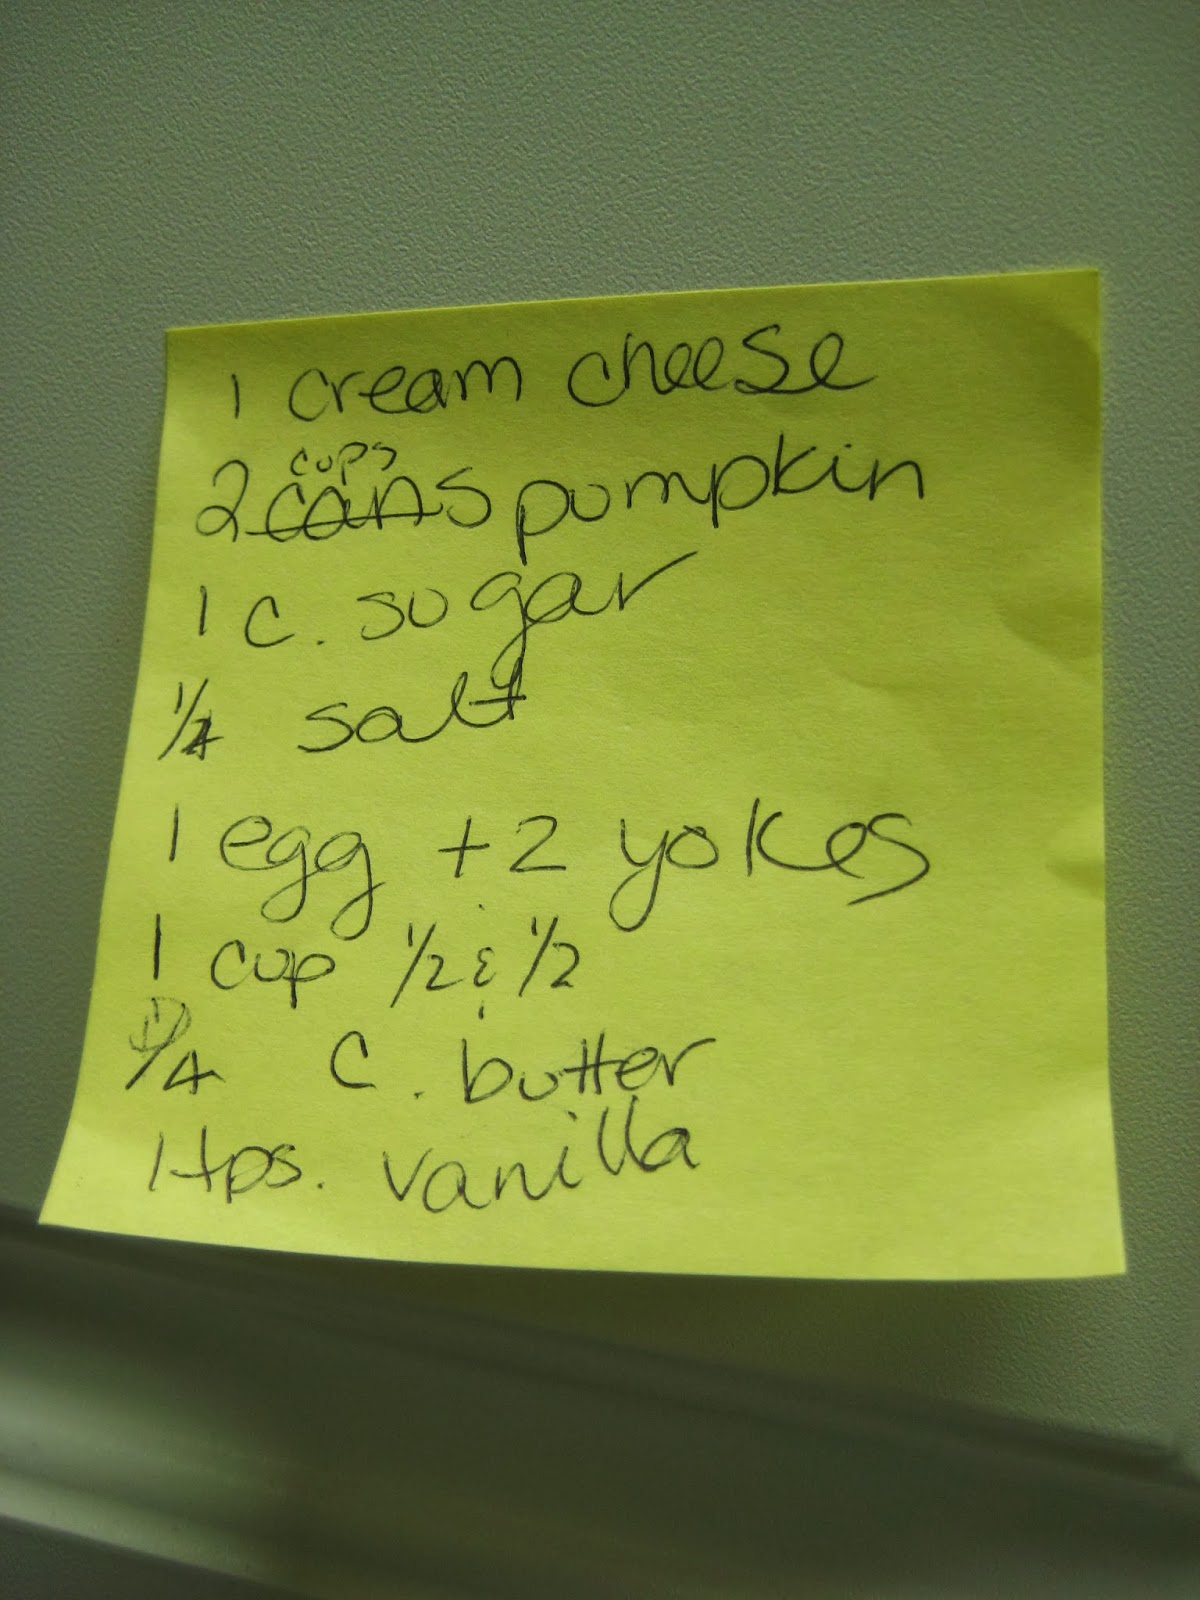 1 cream cheese
cups
2 cans pumpkin
1 c. sugar
1/4 salt
1 egg + 2 yokes
1 cup 1/2 & 1/2
1/4 c. butter
1 tps. vanilla